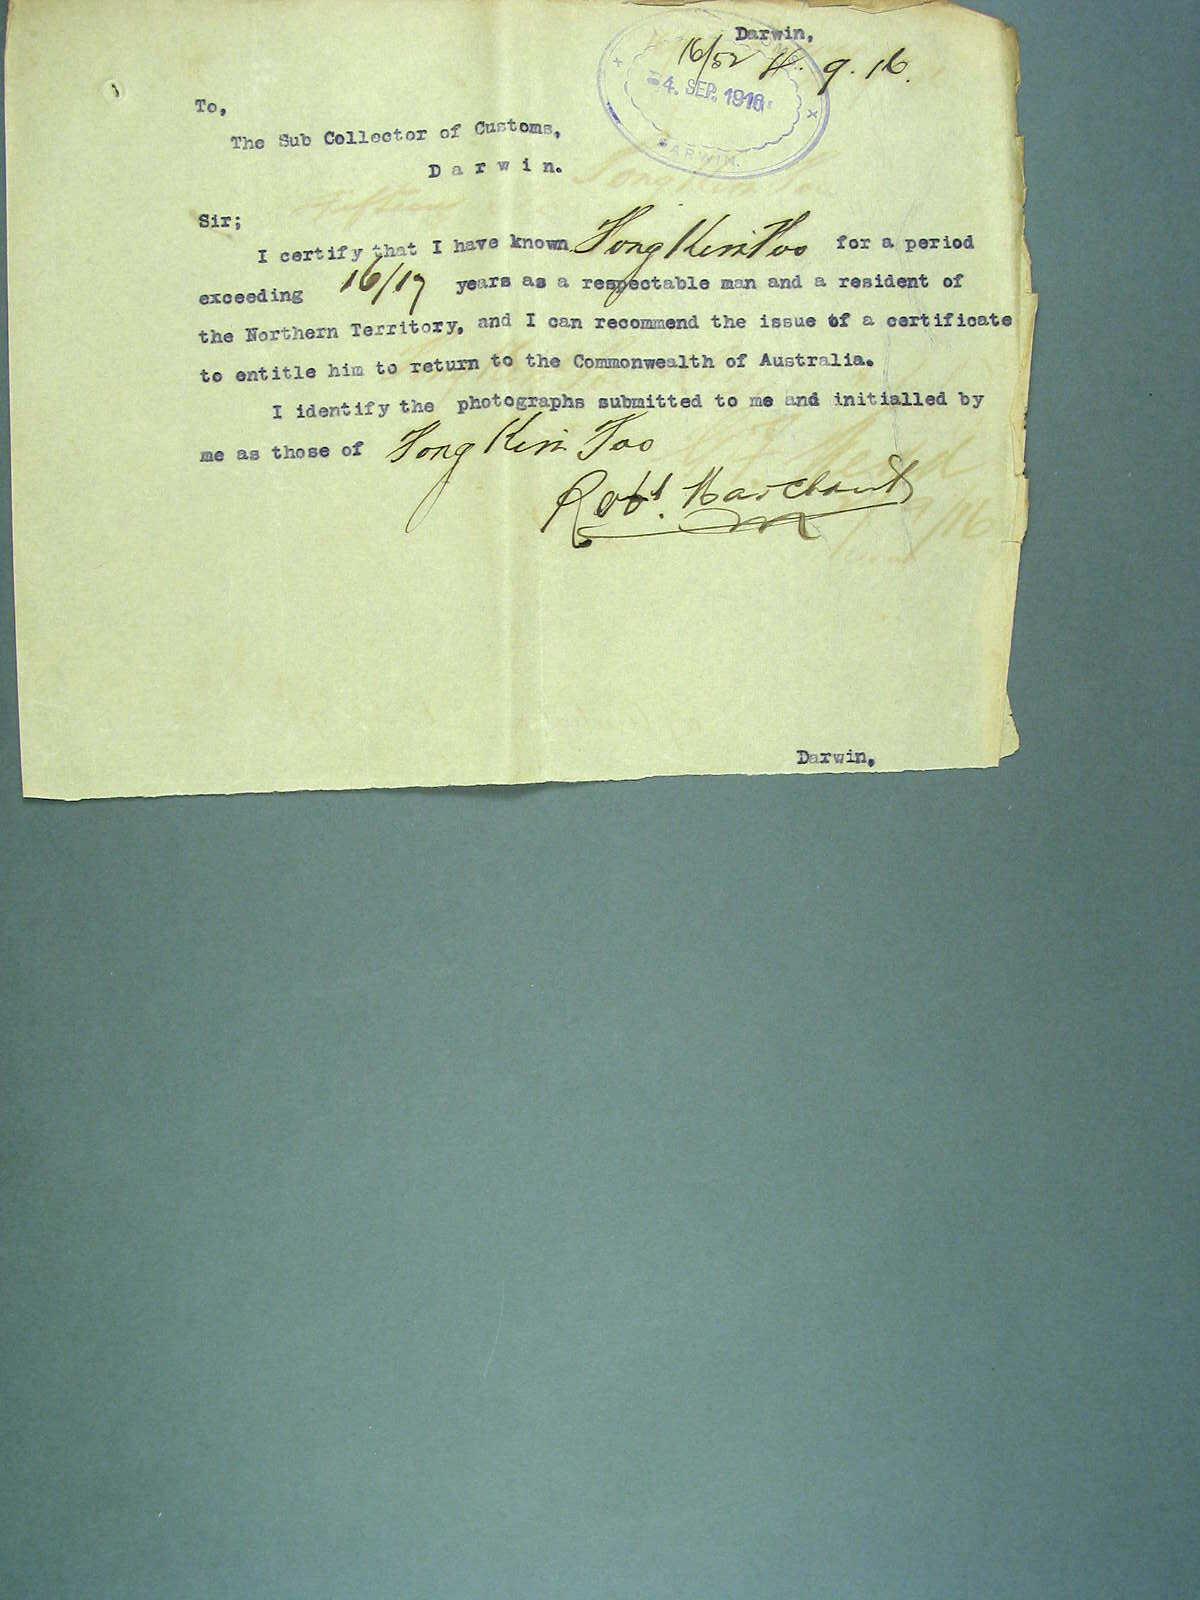 Darwin,
16/52 4. 9. 16.
4. SEP. 1916
DARWIN.
To,
The Sub Collector of Customs,
Darwin.
Sir;
I certify that I have known Fong Kim Foo for a period
exceeding 16/17 years as a respectable man and a resident of
the Northern Territory, and I can recommend the issue of a certificate
to entitle him to return to the Commonwealth of Australia.
I identify the photographs submitted to me and initialled by
me as those of Fong Kim Foo
Robt. Marchant
Darwin,